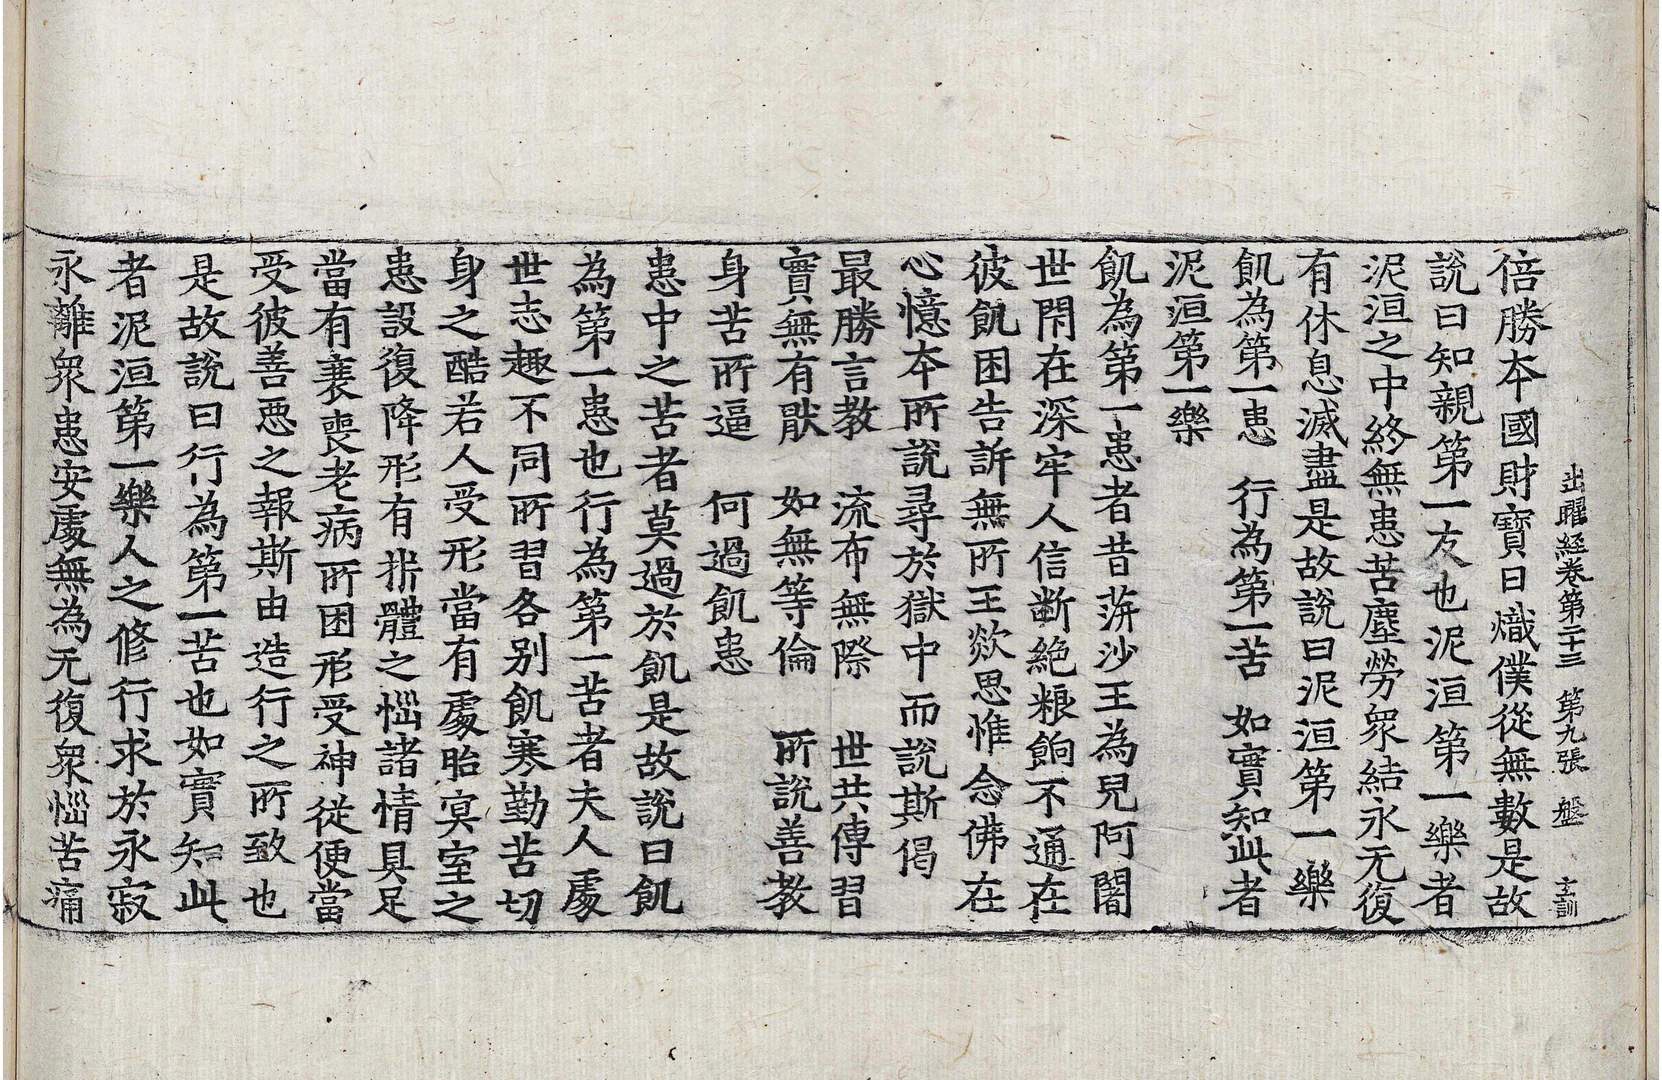 出曜經卷第二十三 第九張 盤 玄訓
倍勝本國財寶日熾僕從無數是故
說曰知親第一友也泥洹第一樂者
泥洹之中終無患苦塵勞衆結永无復
有休息滅盡是故說曰泥洹第一樂
飢為第一患 行為第一苦 如實知此者
泥洹第一樂
飢為第一患者昔蓱沙王為兒阿闍
世閇在深牢人信断絶粮餉不通在
彼飢困告訴無所王欻思惟念佛在
心憶本所說尋於獄中而說斯偈
最勝言教 流布無際 世共傳習
實無有猒 如無等倫 所說善教
身苦所逼 何過飢患
患中之苦者莫過於飢是故說曰飢
為第一患也行為第一苦者夫人處
世志趣不同所習各別飢寒勤苦切
身之酷若人受形當有處胎㝠室之
患設復降形有㭰體之惱諸情具足
當有衰喪老病所困形受神從便當
受彼善惡之報斯由造行之所致也
是故說曰行為第一苦也如實知此
者泥洹第一樂人之修行求於永寂
永離衆患安處無為无復衆惱苦痛